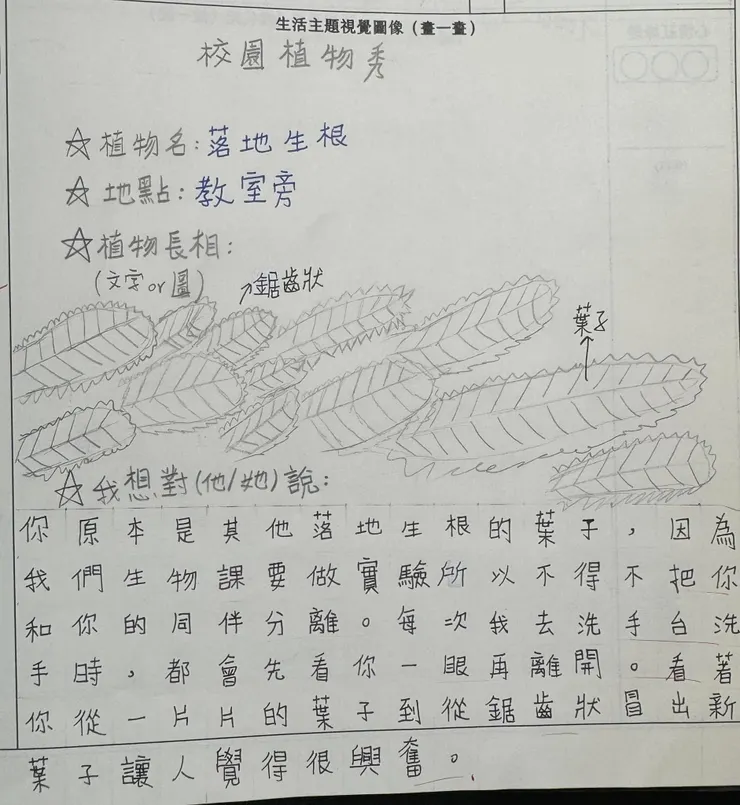 生活主題視覺圖像（畫一畫）
校園植物秀
☆植物名：落地生根
☆地點：教室旁
☆植物長相：
（文字or圖）
↗鋸齒狀
葉子
☆我想對(他/她)說：
你原本是其他落地生根的葉子，因為
我們生物課要做實驗所以不得不把你
和你的同伴分離。每次我去洗手台洗
手時，都會先看你一眼再離開。看著
你從一片片的葉子到從鋸齒狀冒出新
葉子讓人覺得很興奮。